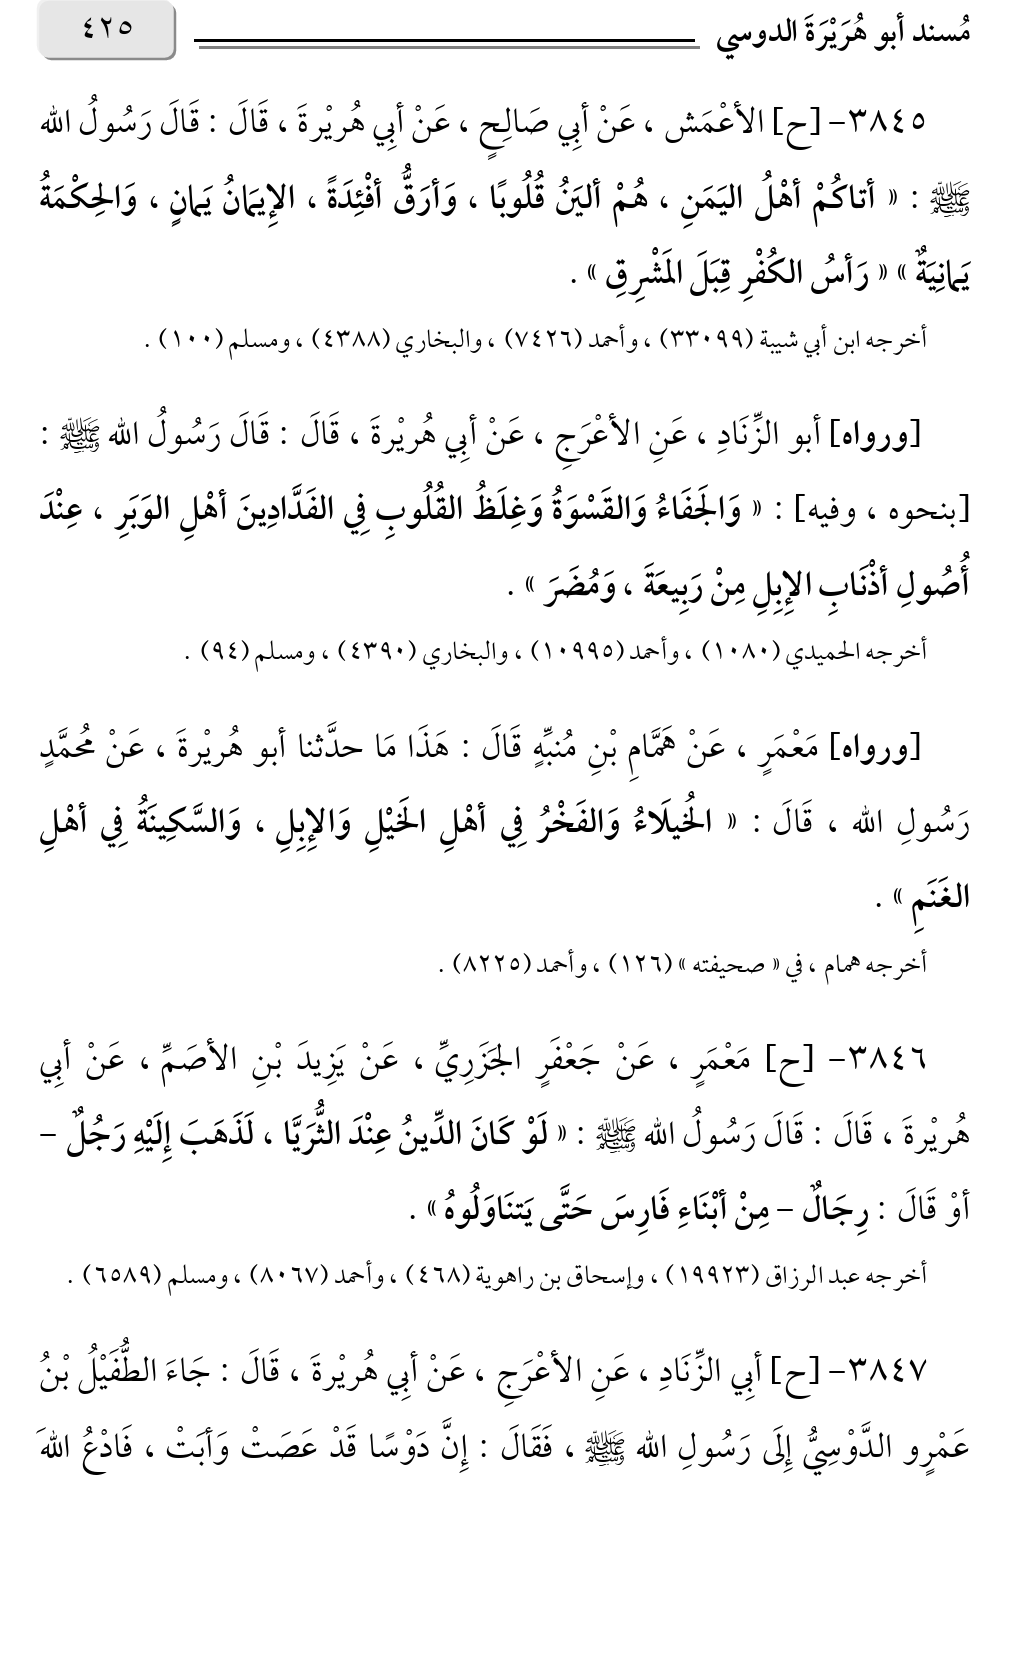 مُسند أبو هُرَيْرَةَ الدوسي ٤٢٥
٣٨٤٥- [ح] الأعْمَش ، عَنْ أبي صَالِحٍ ، عَنْ أبِي هُريْرةَ ، قَالَ : قَالَ رَسُولُ الله
ﷺ : « أتاكُمْ أهْلُ اليَمَنِ ، هُمْ أليَنُ قُلُوبًا ، وَأرَقُّ أفْئِدَةً ، الإِيمَانُ يَمانٍ ، وَالحِكْمَةُ
يَمانِيَةٌ » « رَأسُ الكُفْرِ قِبَلَ المَشْرِقِ » .
أخرجه ابن أبي شيبة (٣٣٠٩٩) ، وأحمد (٧٤٢٦) ، والبخاري (٤٣٨٨) ، ومسلم (١٠٠) .
[ورواه] أبو الزِّنَادِ ، عَنِ الأعْرَجِ ، عَنْ أبِي هُريْرةَ ، قَالَ : قَالَ رَسُولُ الله ﷺ :
[بنحوه ، وفيه] : « وَالجَفَاءُ وَالقَسْوَةُ وَغِلَظُ القُلُوبِ فِي الفَدَّادِينَ أهْلِ الوَبَرِ ، عِنْدَ
أُصُولِ أذْنَابِ الإِبِلِ مِنْ رَبِيعَةَ ، وَمُضَرَ » .
أخرجه الحميدي (١٠٨٠) ، وأحمد (١٠٩٩٥) ، والبخاري (٤٣٩٠) ، ومسلم (٩٤) .
[ورواه] مَعْمَرٍ ، عَنْ هَمَّامِ بْنِ مُنبِّهٍ قَالَ : هَذَا مَا حدَّثنا أبو هُريْرةَ ، عَنْ مُحمَّدٍ
رَسُولِ الله ، قَالَ : « الخُيلَاءُ وَالفَخْرُ فِي أهْلِ الخَيْلِ وَالإِبِلِ ، وَالسَّكِينَةُ فِي أهْلِ
الغَنَمِ » .
أخرجه همام ، في « صحيفته » (١٢٦) ، وأحمد (٨٢٢٥) .
٣٨٤٦- [ح] مَعْمَرٍ ، عَنْ جَعْفَرٍ الجَزَرِيِّ ، عَنْ يَزِيدَ بْنِ الأصَمِّ ، عَنْ أبِي
هُريْرةَ ، قَالَ : قَالَ رَسُولُ الله ﷺ : « لَوْ كَانَ الدِّينُ عِنْدَ الثُّرَيَّا ، لَذَهَبَ إِلَيْهِ رَجُلٌ –
أوْ قَالَ : رِجَالٌ – مِنْ أبْنَاءِ فَارِسَ حَتَّى يَتنَاوَلُوهُ » .
أخرجه عبد الرزاق (١٩٩٢٣) ، وإسحاق بن راهوية (٤٦٨) ، وأحمد (٨٠٦٧) ، ومسلم (٦٥٨٩) .
٣٨٤٧- [ح] أبِي الزِّنَادِ ، عَنِ الأعْرَجِ ، عَنْ أبِي هُريْرةَ ، قَالَ : جَاءَ الطُّفَيْلُ بْنُ
عَمْرٍو الدَّوْسِيُّ إِلَى رَسُولِ الله ﷺ ، فَقَالَ : إِنَّ دَوْسًا قَدْ عَصَتْ وَأبَتْ ، فَادْعُ اللهَ